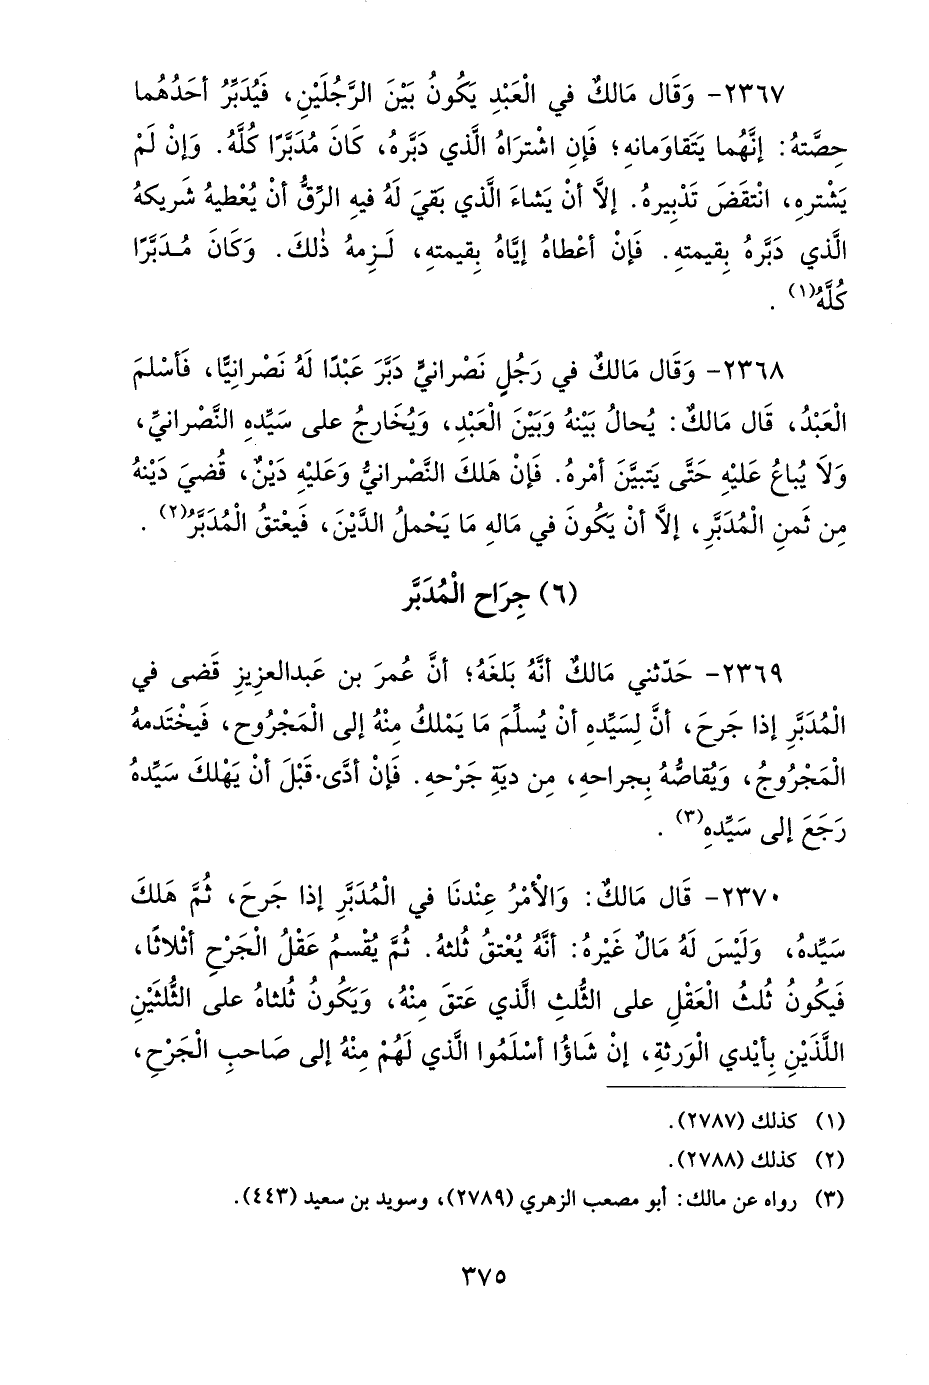 ٢٣٦٧- وَقَال مَالكٌ في الْعَبْدِ يَكُونُ بَيْنَ الرَّجُلَيْنِ، فَيُدَبِّرُ أحَدُهُما
حِصَّتهُ: إنَّهُما يَتَقاوَمانهِ؛ فَإنِ اشْترَاهُ الَّذي دَبَّره، كَانَ مُدَبَّرًا كُلَّهُ. وَإنْ لَمْ
يَشْترهِ، انْتقَضَ تَدْبِيرهُ. إلاَّ أنْ يَشاءَ الَّذي بَقيَ لَهُ فيهِ الرِّقُّ أنْ يُعْطيهُ شَريكهُ
الَّذي دَبَّرهُ بِقيمتهِ. فَإنْ أعْطاهُ إيَّاهُ بِقيمتهِ، لَـزِمهُ ذٰلكَ. وَكَانَ مُـدَبَّرًا
كُلَّهُ(١).
٢٣٦٨- وَقَال مَالكٌ في رَجُلٍ نَصْرانيٍّ دَبَّرَ عَبْدًا لَهُ نَصْرانِيًّا، فَأسْلمَ
الْعَبْدُ، قَال مَالكٌ: يُحالُ بَيْنهُ وَبَيْنَ الْعَبْدِ، وَيُخَارجُ على سَيِّدهِ النَّصْرانيِّ،
وَلاَ يُباعُ عَليْهِ حَتَّى يَتبيَّنَ أمْرهُ. فَإنْ هَلكَ النَّصْرانيُّ وَعَليْهِ دَيْنٌ، قُضيَ دَيْنهُ
مِن ثَمنِ الْمُدَبَّرِ، إلاَّ أنْ يَكُونَ في مَالهِ مَا يَحْملُ الدَّيْنَ، فَيعْتقُ الْمُدَبَّرُ(٢).
(٦) جِرَاح الْمُدَبَّر
٢٣٦٩- حَدّثني مَالكٌ أنَّهُ بَلغَهُ؛ أنَّ عُمرَ بن عَبدالعزيزِ قَضى في
الْمُدَبَّرِ إذا جَرحَ، أنَّ لِسَيِّدهِ أنْ يُسلِّمَ مَا يَمْلكُ مِنْهُ إلى الْمَجْرُوحِ، فَيخْتَدمهُ
الْمَجْرُوحُ، وَيُقاصُّهُ بِجراحهِ، مِن ديَةِ جَرْحهِ. فَإنْ أدَّى قَبْلَ أنْ يَهْلكَ سَيِّدهُ
رَجَعَ إلى سَيِّدهِ(٣).
٢٣٧٠- قَال مَالكٌ: وَالْأمْرُ عِنْدنَا في الْمُدَبَّرِ إذا جَرحَ، ثُمَّ هَلكَ
سَيِّدهُ، وَلَيْسَ لَهُ مَالٌ غَيْرهُ: أنَّهُ يُعْتقُ ثُلثهُ. ثُمَّ يُقْسمُ عَقْلُ الْجَرْحِ أثْلاثًا،
فَيكُونُ ثُلثُ الْعَقْلِ على الثُّلثِ الَّذي عَتقَ مِنْهُ، وَيَكُونُ ثُلثاهُ على الثُّلثَيْنِ
اللَّذَيْنِ بِأيْدي الْورثةِ، إنْ شَاؤُا أسْلَمُوا الَّذي لَهُمْ مِنْهُ إلى صَاحبِ الْجَرْحِ،
(١) كذلك (٢٧٨٧).
(٢) كذلك (٢٧٨٨).
(٣) رواه عن مالك: أبو مصعب الزهري (٢٧٨٩)، وسويد بن سعيد (٤٤٣).
٣٧٥